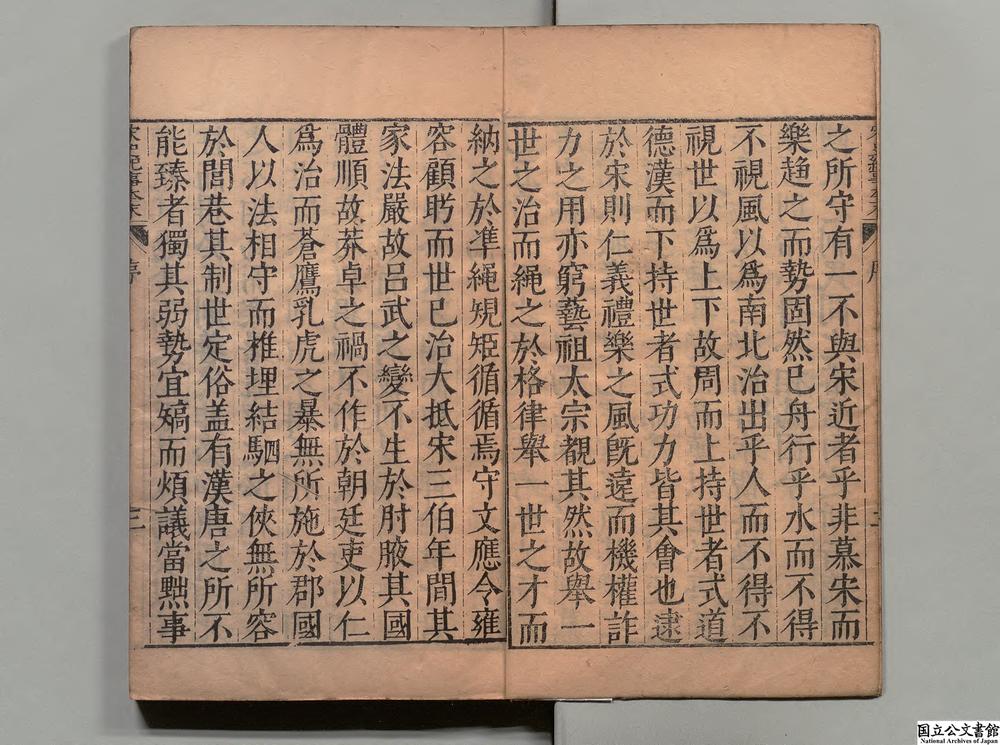 之所守有一不與宋近者乎非慕宋而
樂趨之而勢固然已舟行乎水而不得
不視風以爲南北治出乎人而不得不
視世以爲上下故周而上持世者式道
德漢而下持世者式功力皆其會也逮
於宋則仁義禮樂之風旣遠而機權詐
力之用亦窮藝祖太宗覩其然故舉一
世之治而繩之於格律舉一世之才而
納之於準繩規矩循循焉守文應令雍
容顧盻而世已治大抵宋三伯年間其
家法嚴故呂武之變不生於肘腋其國
體順故莽卓之禍不作於朝廷吏以仁
爲治而蒼鷹乳虎之暴無所施於郡國
人以法相守而椎埋結駟之俠無所容
於閭巷其制世定俗盖有漢唐之所不
能臻者獨其弱勢宜矯而煩議當黜事
序
二
国立公文書館
National Archives of Japan